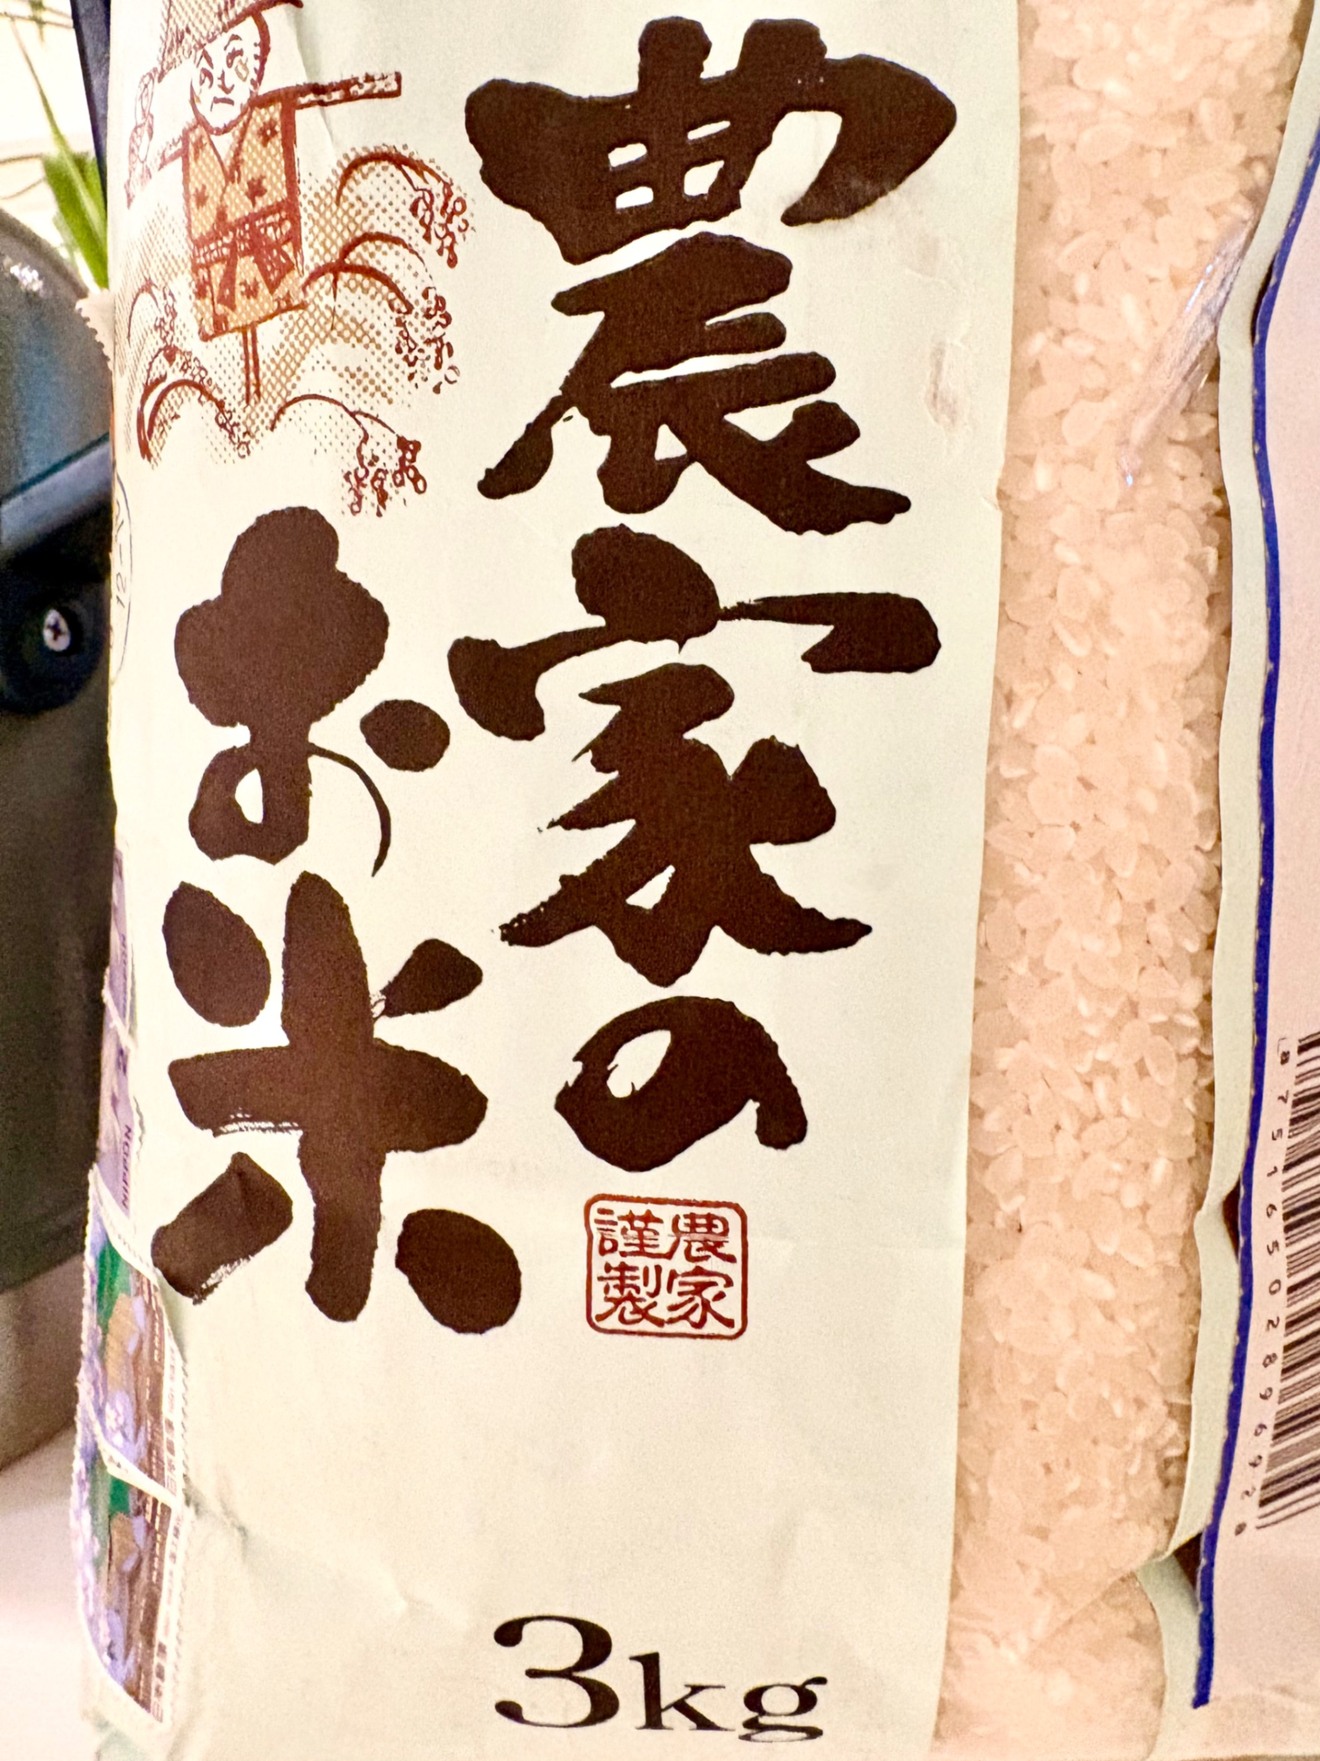 農家の
お米
農家
謹製
3kg